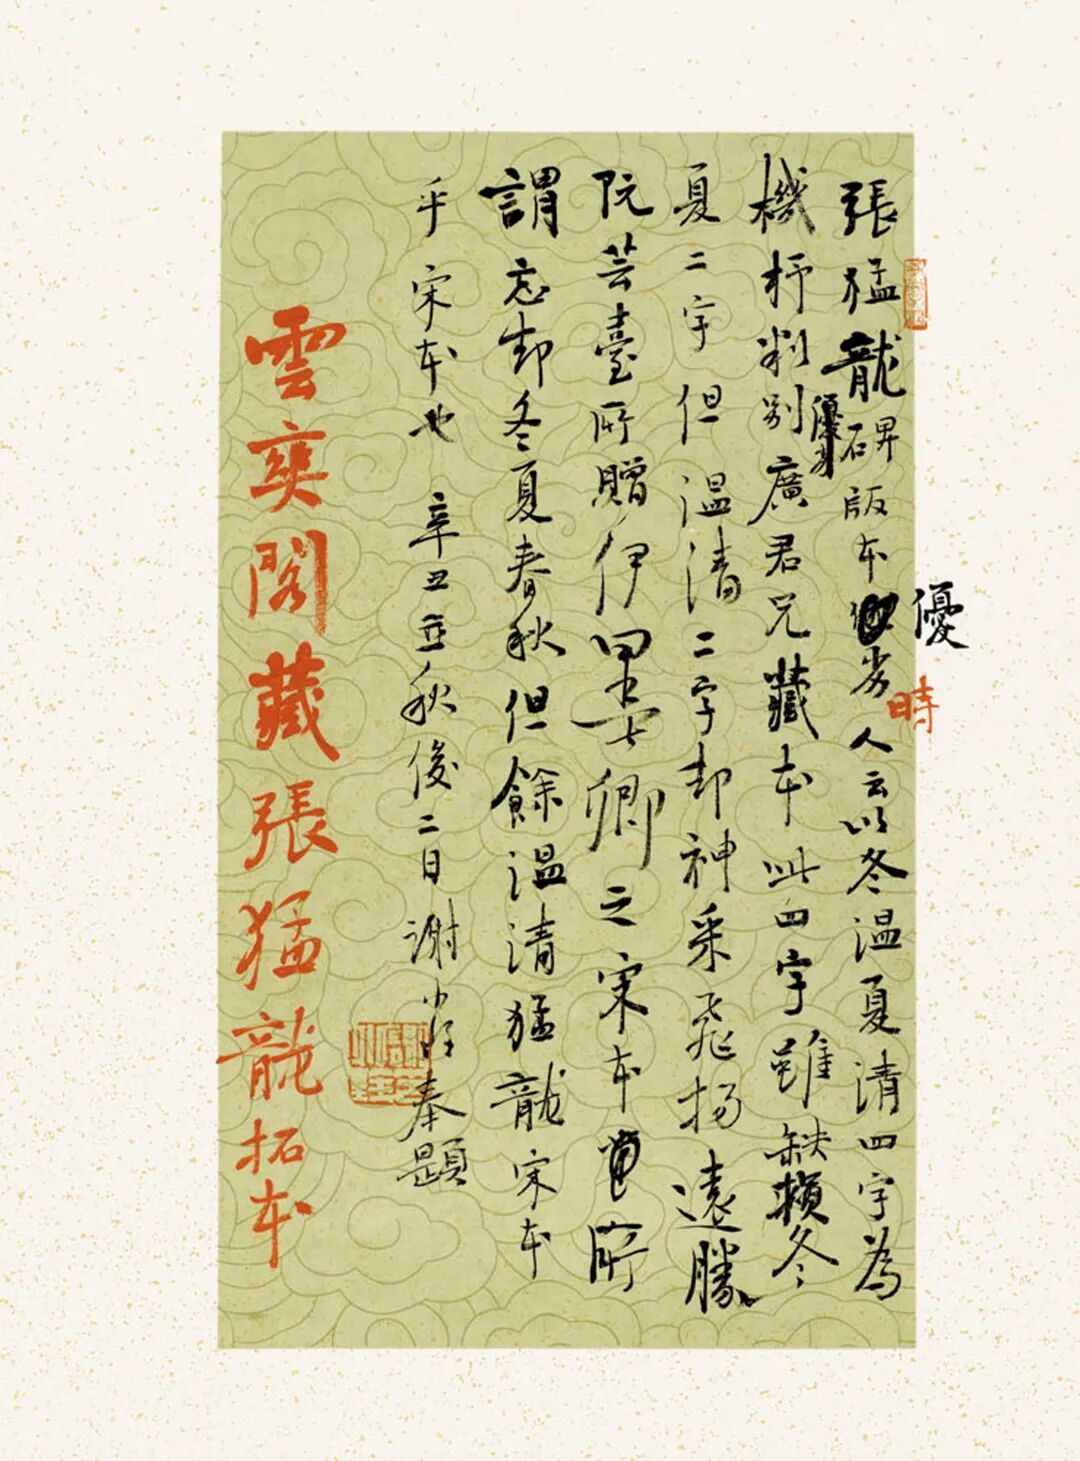 優
時
張猛龍碑版本劣人云以冬温夏清四字為
優
機杼判别廣君兄藏本此四字雖缺損冬
夏二字但温清二字却神采飛揚遠勝
阮芸臺所贈伊墨卿之宋本所
謂忘却冬夏春秋但餘温清猛龍宋本
乎宋本也 辛丑立秋後二日謝小奉題
雲奕閣藏張猛龍拓本